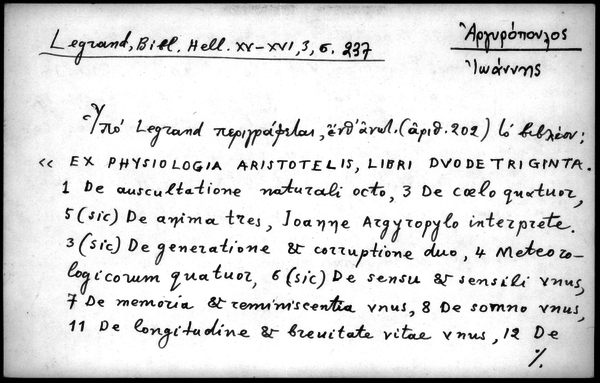 Legrand, Bibl. Hell. XV–XVI, 3, σ. 237
Ἀργυρόπουλος
Ἰωάννης
Ὑπό Legrand περιγράφεται, ἔνθ' ἀνωτ. (ἀριθ. 202) τό βιβλίον:
« EX PHYSIOLOGIA ARISTOTELIS, LIBRI DVODETRIGINTA.
1 De auscultatione naturali octo, 3 De cœlo quatuor,
5 (sic) De anima tres, Ioanne Argyropylo interprete.
3 (sic) De generatione & corruptione duo, 4 Meteoro-
logicorum quatuor, 6 (sic) De sensu & sensili vnus,
7 De memoria & reminiscentia vnus, 8 De somno vnus,
11 De longitudine & breuitate vitae vnus, 12 De
%.